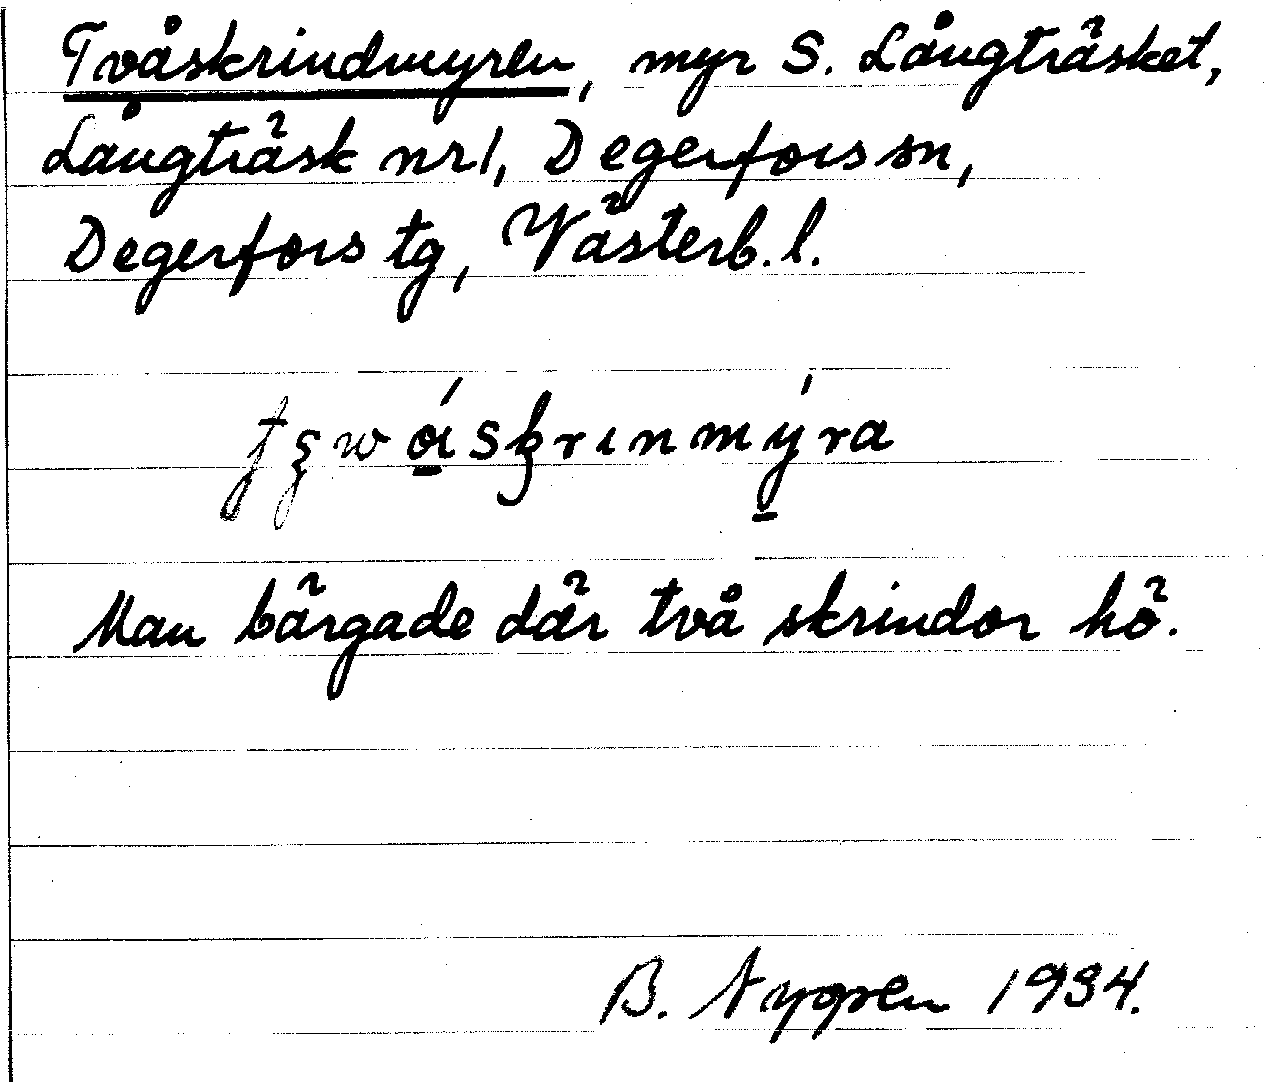 Tvåskrindmyren, myr S. Långträsket,
Långträsk nr 1, Degerfors sn,
Degerfors tg, Västerb. l.
Man bärgade där två skrindor hö.
B. Nygren 1934.